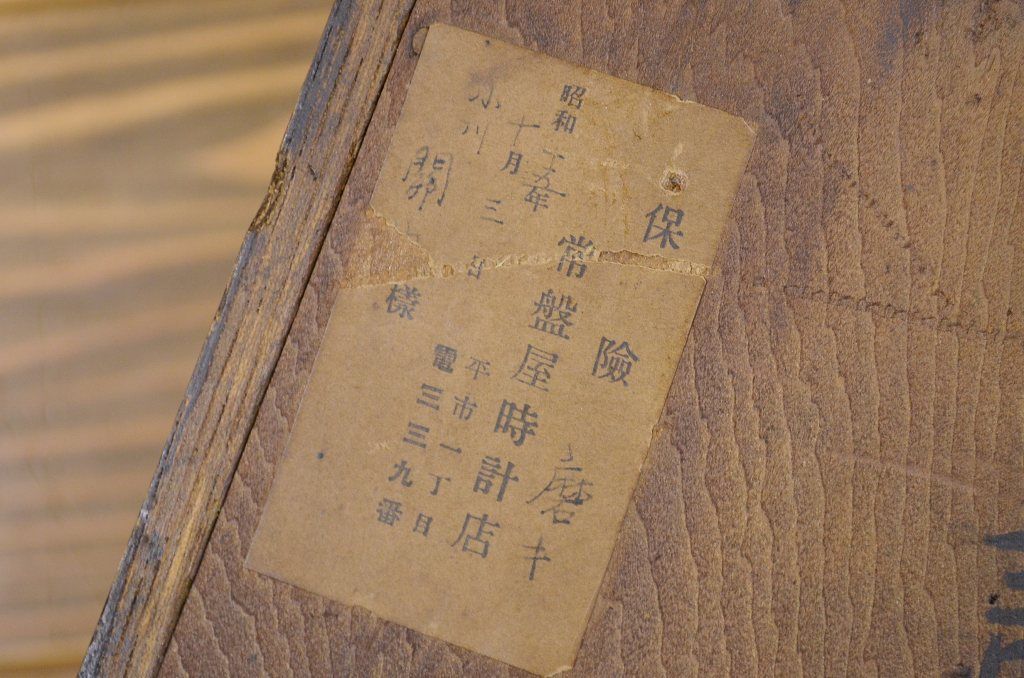 保險
磨キ
昭和十五年
常盤屋時計店
十月
三年
平市一丁目
電三三九番
小川
關様